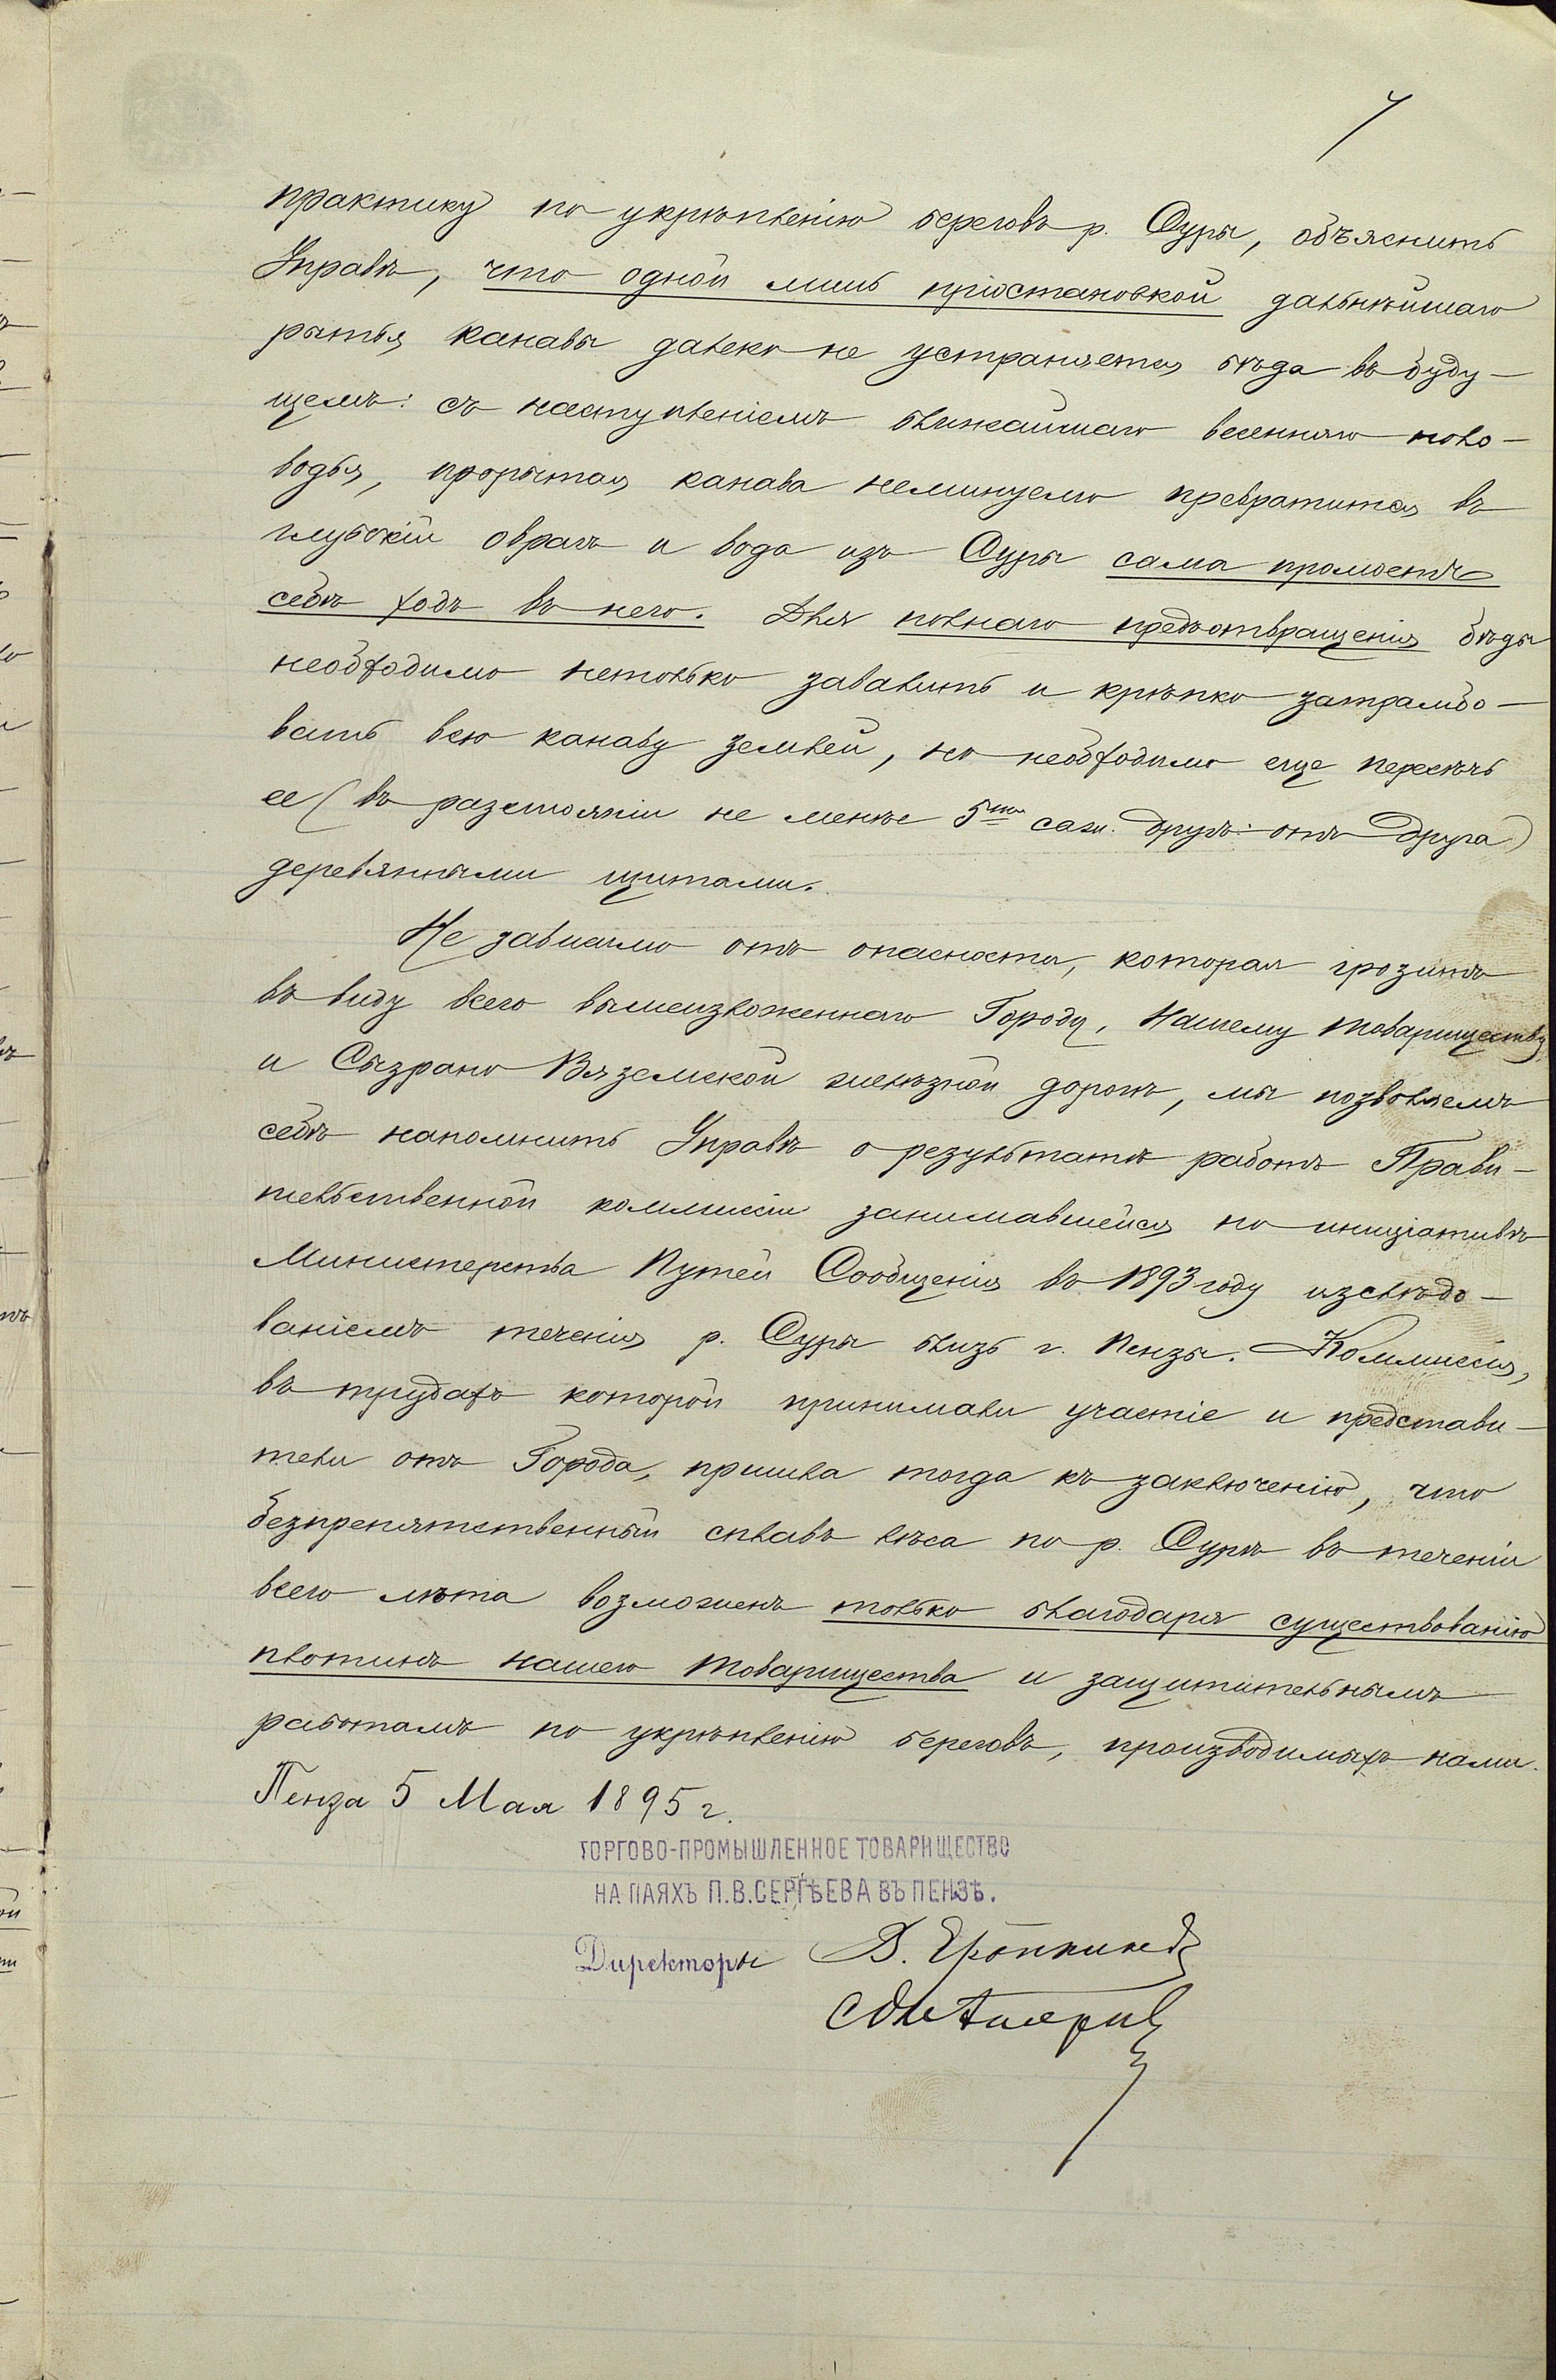 7
практику по укрѣпленію береговъ р. Суры, объяснить
Управѣ, что одной лишь пріостановкой дальнѣйшаго
рытья канавы далеко не устраняется бѣда въ буду-
щемъ: съ наступленіемъ ближайшаго весенняго поло-
водья, прорытая канава неминуемо превратится въ
глубокій оврагъ и вода изъ Суры сама промоетъ
себѣ ходъ въ него. Для полнаго предъотвращенія бѣды
необходимо нетолько завалить и крѣпко затрамбо-
вать всю канаву землей, но необходимо еще пересѣчь
ее (въ разстояніи не менѣе 5ти саж. другъ отъ друга)
деревянными щитами.
Не зависимо отъ опасности, которая грозитъ
въ виду всего вышеизложеннаго Городу, Нашему товариществу
и Сызрано Вяземской желѣзной дорогѣ, мы позволяемъ
себѣ напомнить Управѣ о результатѣ работъ Прави-
тельственной коммисіи занимавшейся по иниціативѣ
Министерства Путей Сообщенія въ 1893 году изслѣдо-
ваніемъ теченія р. Суры близь г. Пензы. Коммиссія,
въ трудахъ которой принимали участіе и представи-
тели отъ Города, пришла тогда къ заключенію, что
безпрепятственный сплавъ лѣса по р. Сурѣ въ теченіи
всего лѣта возможенъ только благодаря существованію
плотинъ нашего товарищества и защитительнымъ
работамъ по укрѣпленію береговъ, производимыхъ нами.
Пенза 5 Мая 1895 г.
ТОРГОВО-ПРОМЫШЛЕННОЕ ТОВАРИЩЕСТВО
НА ПАЯХЪ П.В.СЕРГѢЕВА ВЪ ПЕНЗѢ.
Директоры